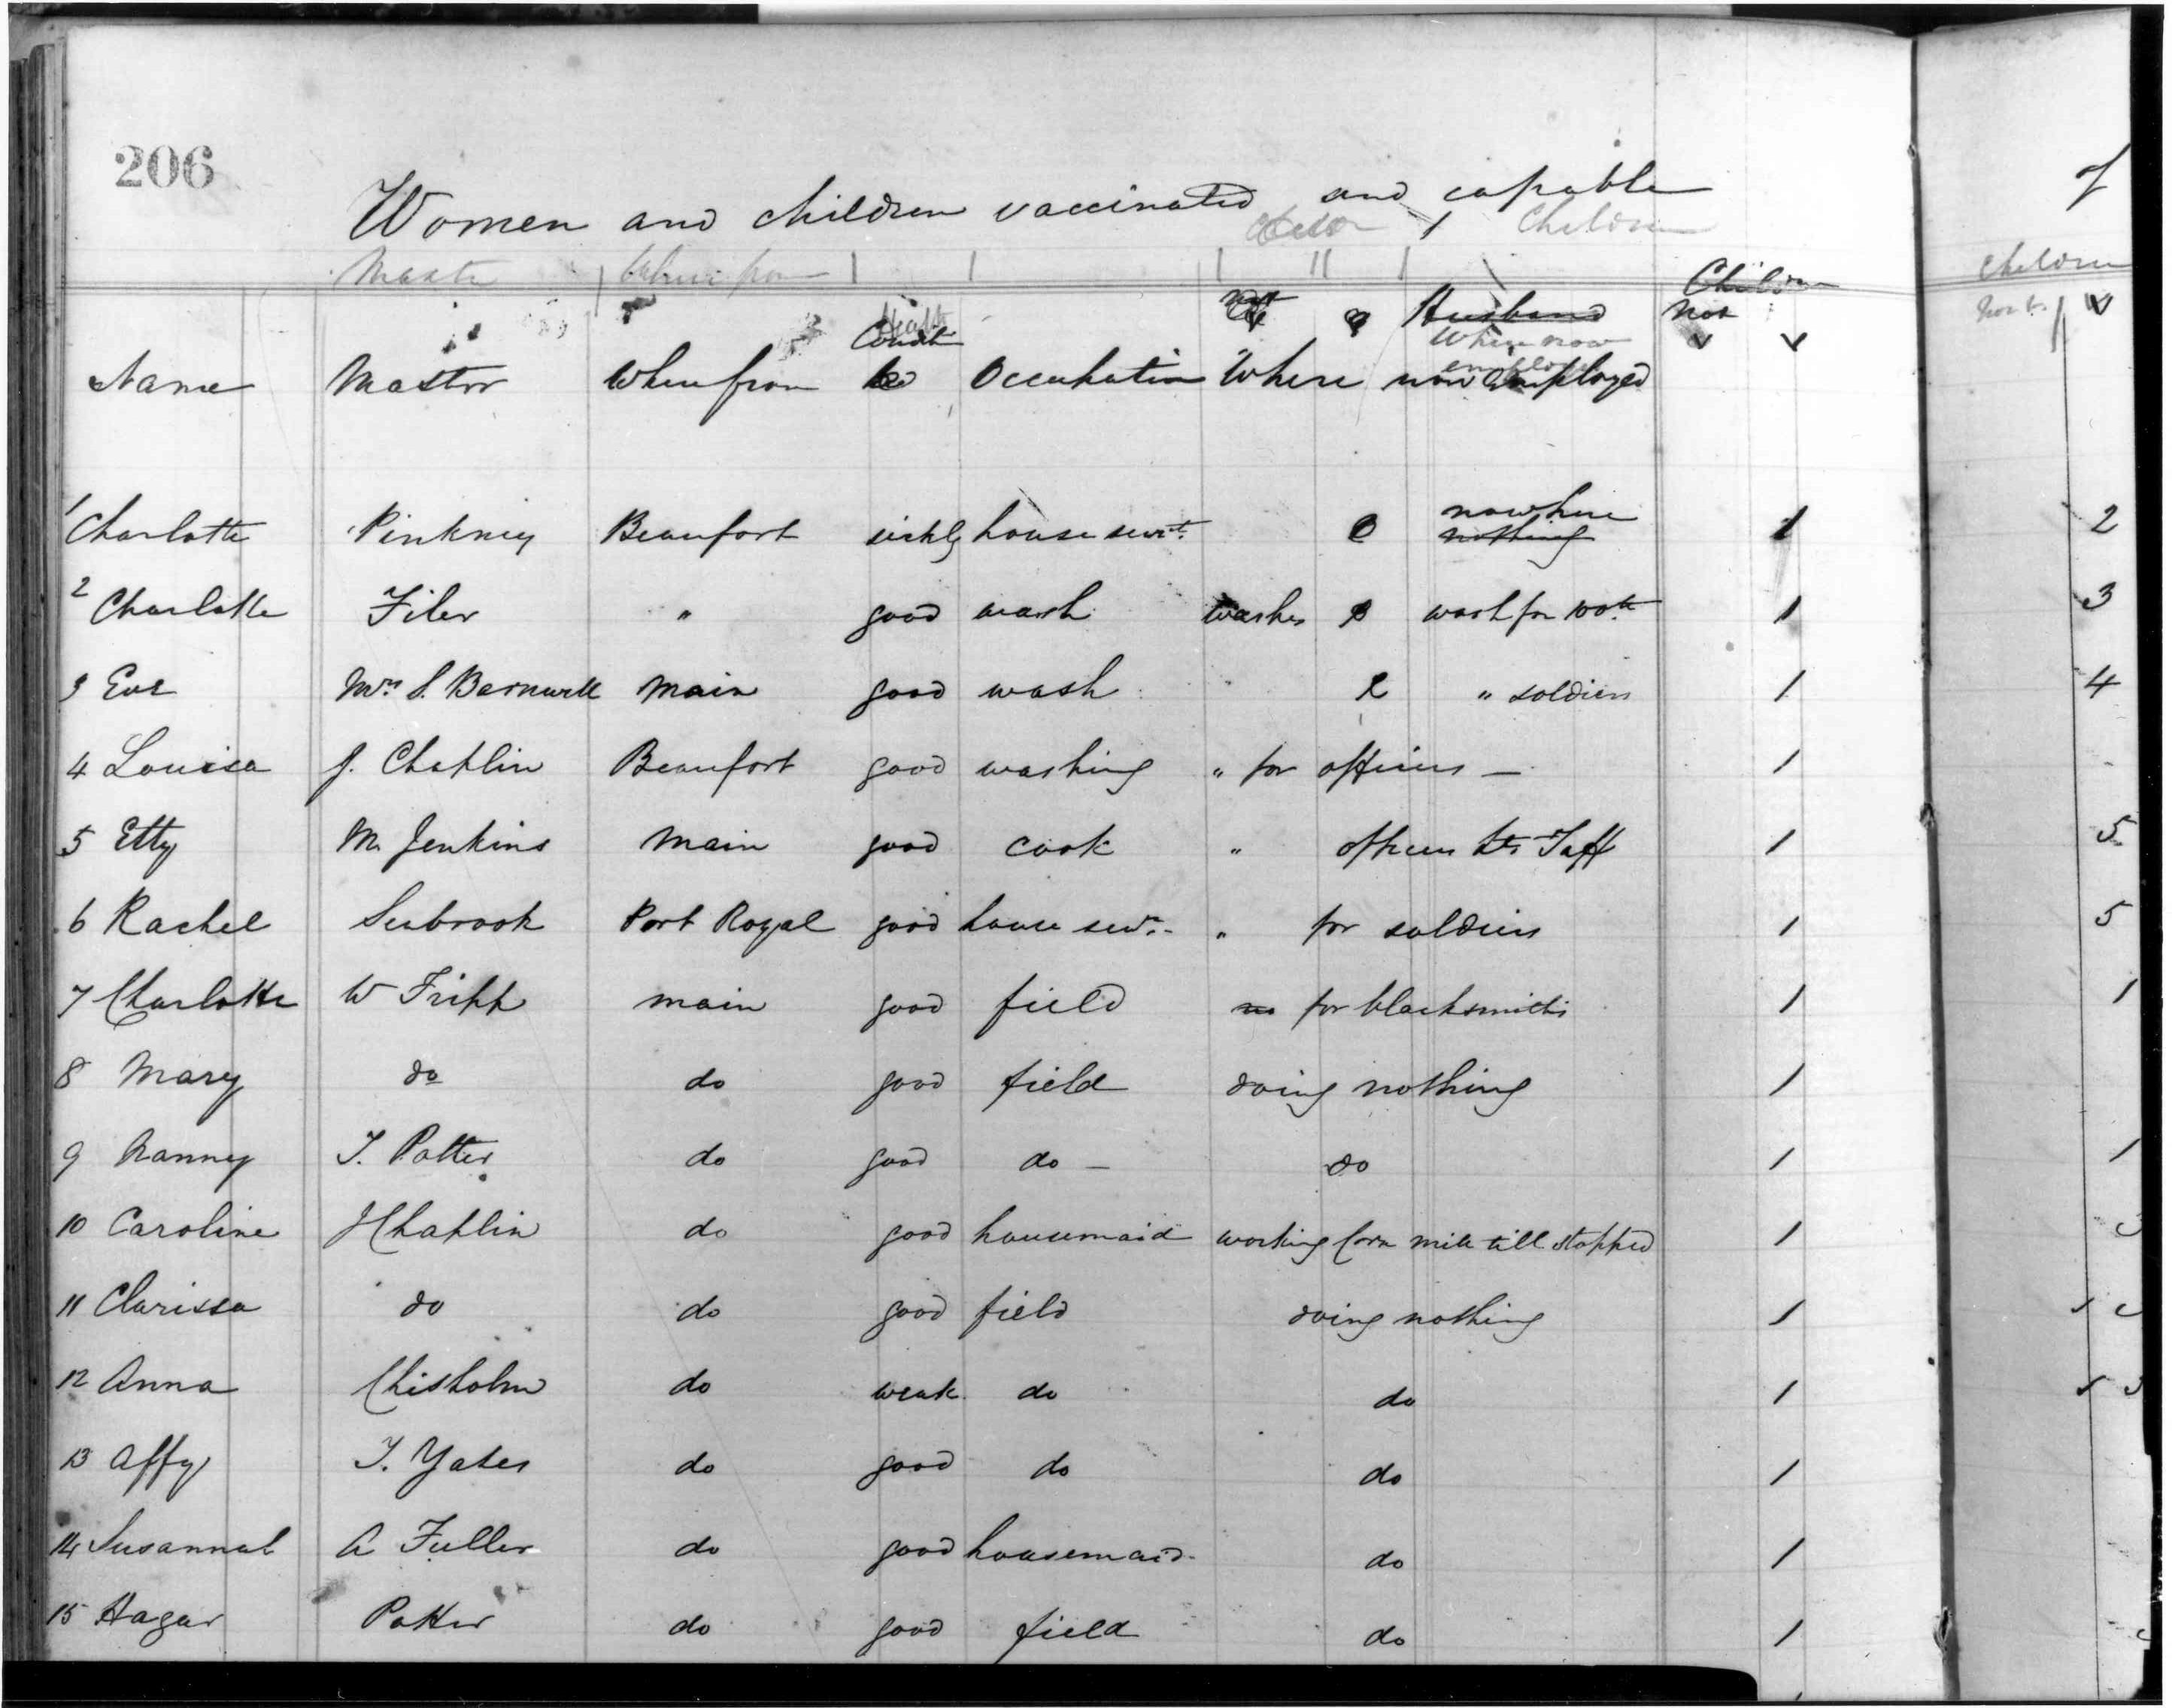 206
Women and children vaccinated and capable of
Master Where from Children Children
Children
not Husband Not
Health Where now
Condt employed
Name Master Where from Occupation Where now employed
nowhere
1 Charlotte Pinkney Beaufort sickly house servt. nothing 1 2
2 Charlotte Filer " good wash washes wash for 100th 1 3
3 Eve Mrs S. Barnwell Main good wash " soldiers 1 4
4 Louisa J. Chaplin Beaufort good washing " for officers — 1
5 Etty M. Jenkins Main good cook " officers 1 5
6 Rachel Seabrook Port Royal good house servt. - " for soldiers 1 5
7 Charlotte W Fripp main good field no for blacksmiths 1 1
8 Mary do do good field doing nothing 1
9 Nanney T. Potter do good do — do 1 1
10 Caroline J Chaplin do good housemaid working Corn mill till stopped 1
11 Clarissa do do good field doing nothing 1
12 Anna Chisholm do weak do do 1
13 Affy T. Yates do good do do 1
14 Susannah A Fuller do good housemaid - do 1
15 Hagar Potter do good field do 1